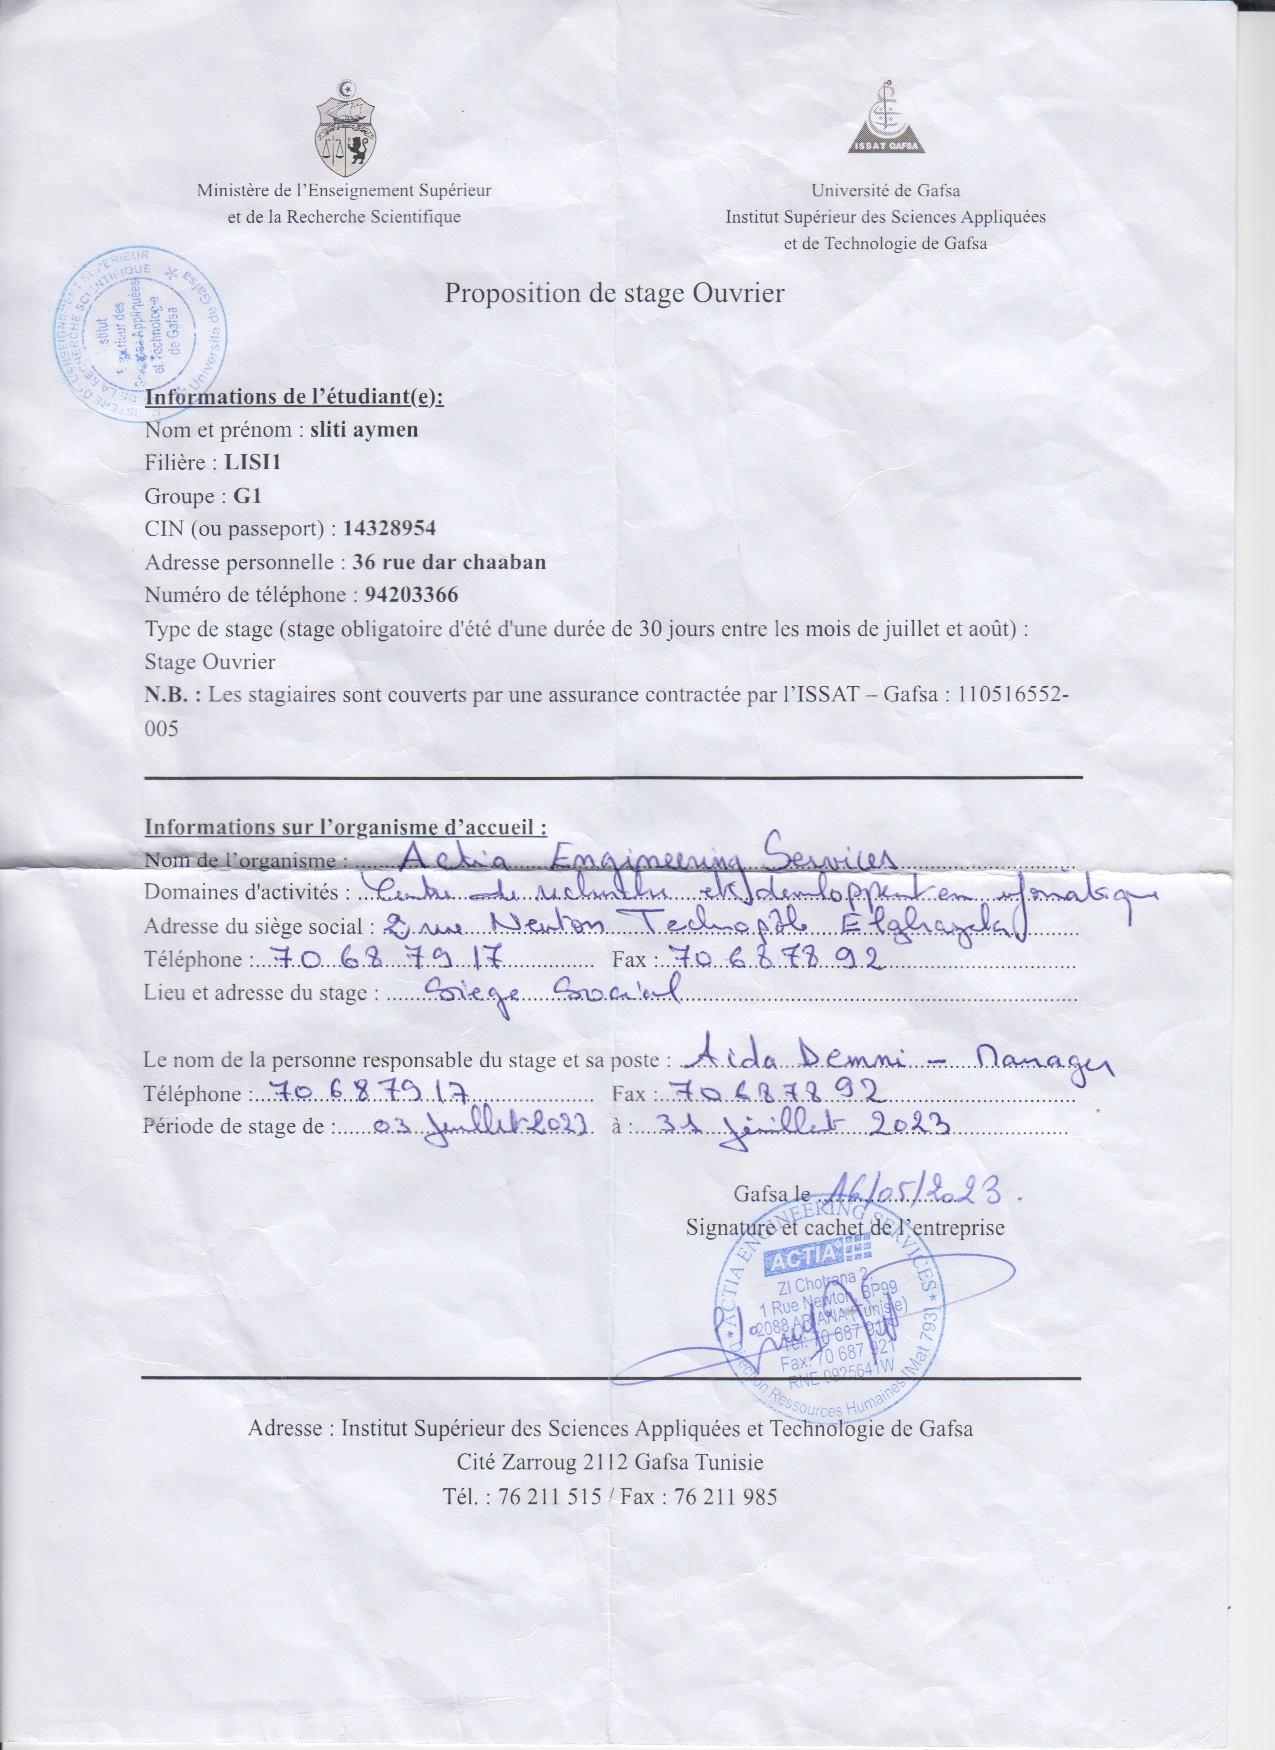 ISSAT GAFSA
Ministère de l'Enseignement Supérieur
et de la Recherche Scientifique
Université de Gafsa
Institut Supérieur des Sciences Appliquées
et de Technologie de Gafsa
Proposition de stage Ouvrier
Institut
Supérieur des
Sciences Appliquées
et Technologie
de Gafsa
Université de Gafsa
Informations de l'étudiant(e):
Nom et prénom : sliti aymen
Filière : LISI1
Groupe : G1
CIN (ou passeport) : 14328954
Adresse personnelle : 36 rue dar chaaban
Numéro de téléphone : 94203366
Type de stage (stage obligatoire d'été d'une durée de 30 jours entre les mois de juillet et août) :
Stage Ouvrier
N.B. : Les stagiaires sont couverts par une assurance contractée par l'ISSAT – Gafsa : 110516552-
005
Informations sur l'organisme d'accueil :
Nom de l'organisme : Actia Engineering Services
Domaines d'activités : Centre de recherche et developpent en informatique
Adresse du siège social : 2 rue Newton Technopôle Elghazela
Téléphone : 70 68 79 17 Fax : 70 68 78 92
Lieu et adresse du stage : Siege Social
Le nom de la personne responsable du stage et sa poste : Aida Demni – Manager
Téléphone : 70 68 79 17 Fax : 70 68 78 92
Période de stage de : 03 Juillet 2023 à : 31 juillet 2023
Gafsa le 16/05/2023.
Signature et cachet de l'entreprise
ACTIA ENGINEERING SERVICES
ACTIA
ZI Chotrana 2,
1 Rue Newton, BP99
2088 ARIANA (Tunisie)
Tél: 70 687 917
Fax: 70 687 921
RNE 0925641W
Direction Ressources Humaines Mat 7931
Adresse : Institut Supérieur des Sciences Appliquées et Technologie de Gafsa
Cité Zarroug 2112 Gafsa Tunisie
Tél. : 76 211 515 / Fax : 76 211 985